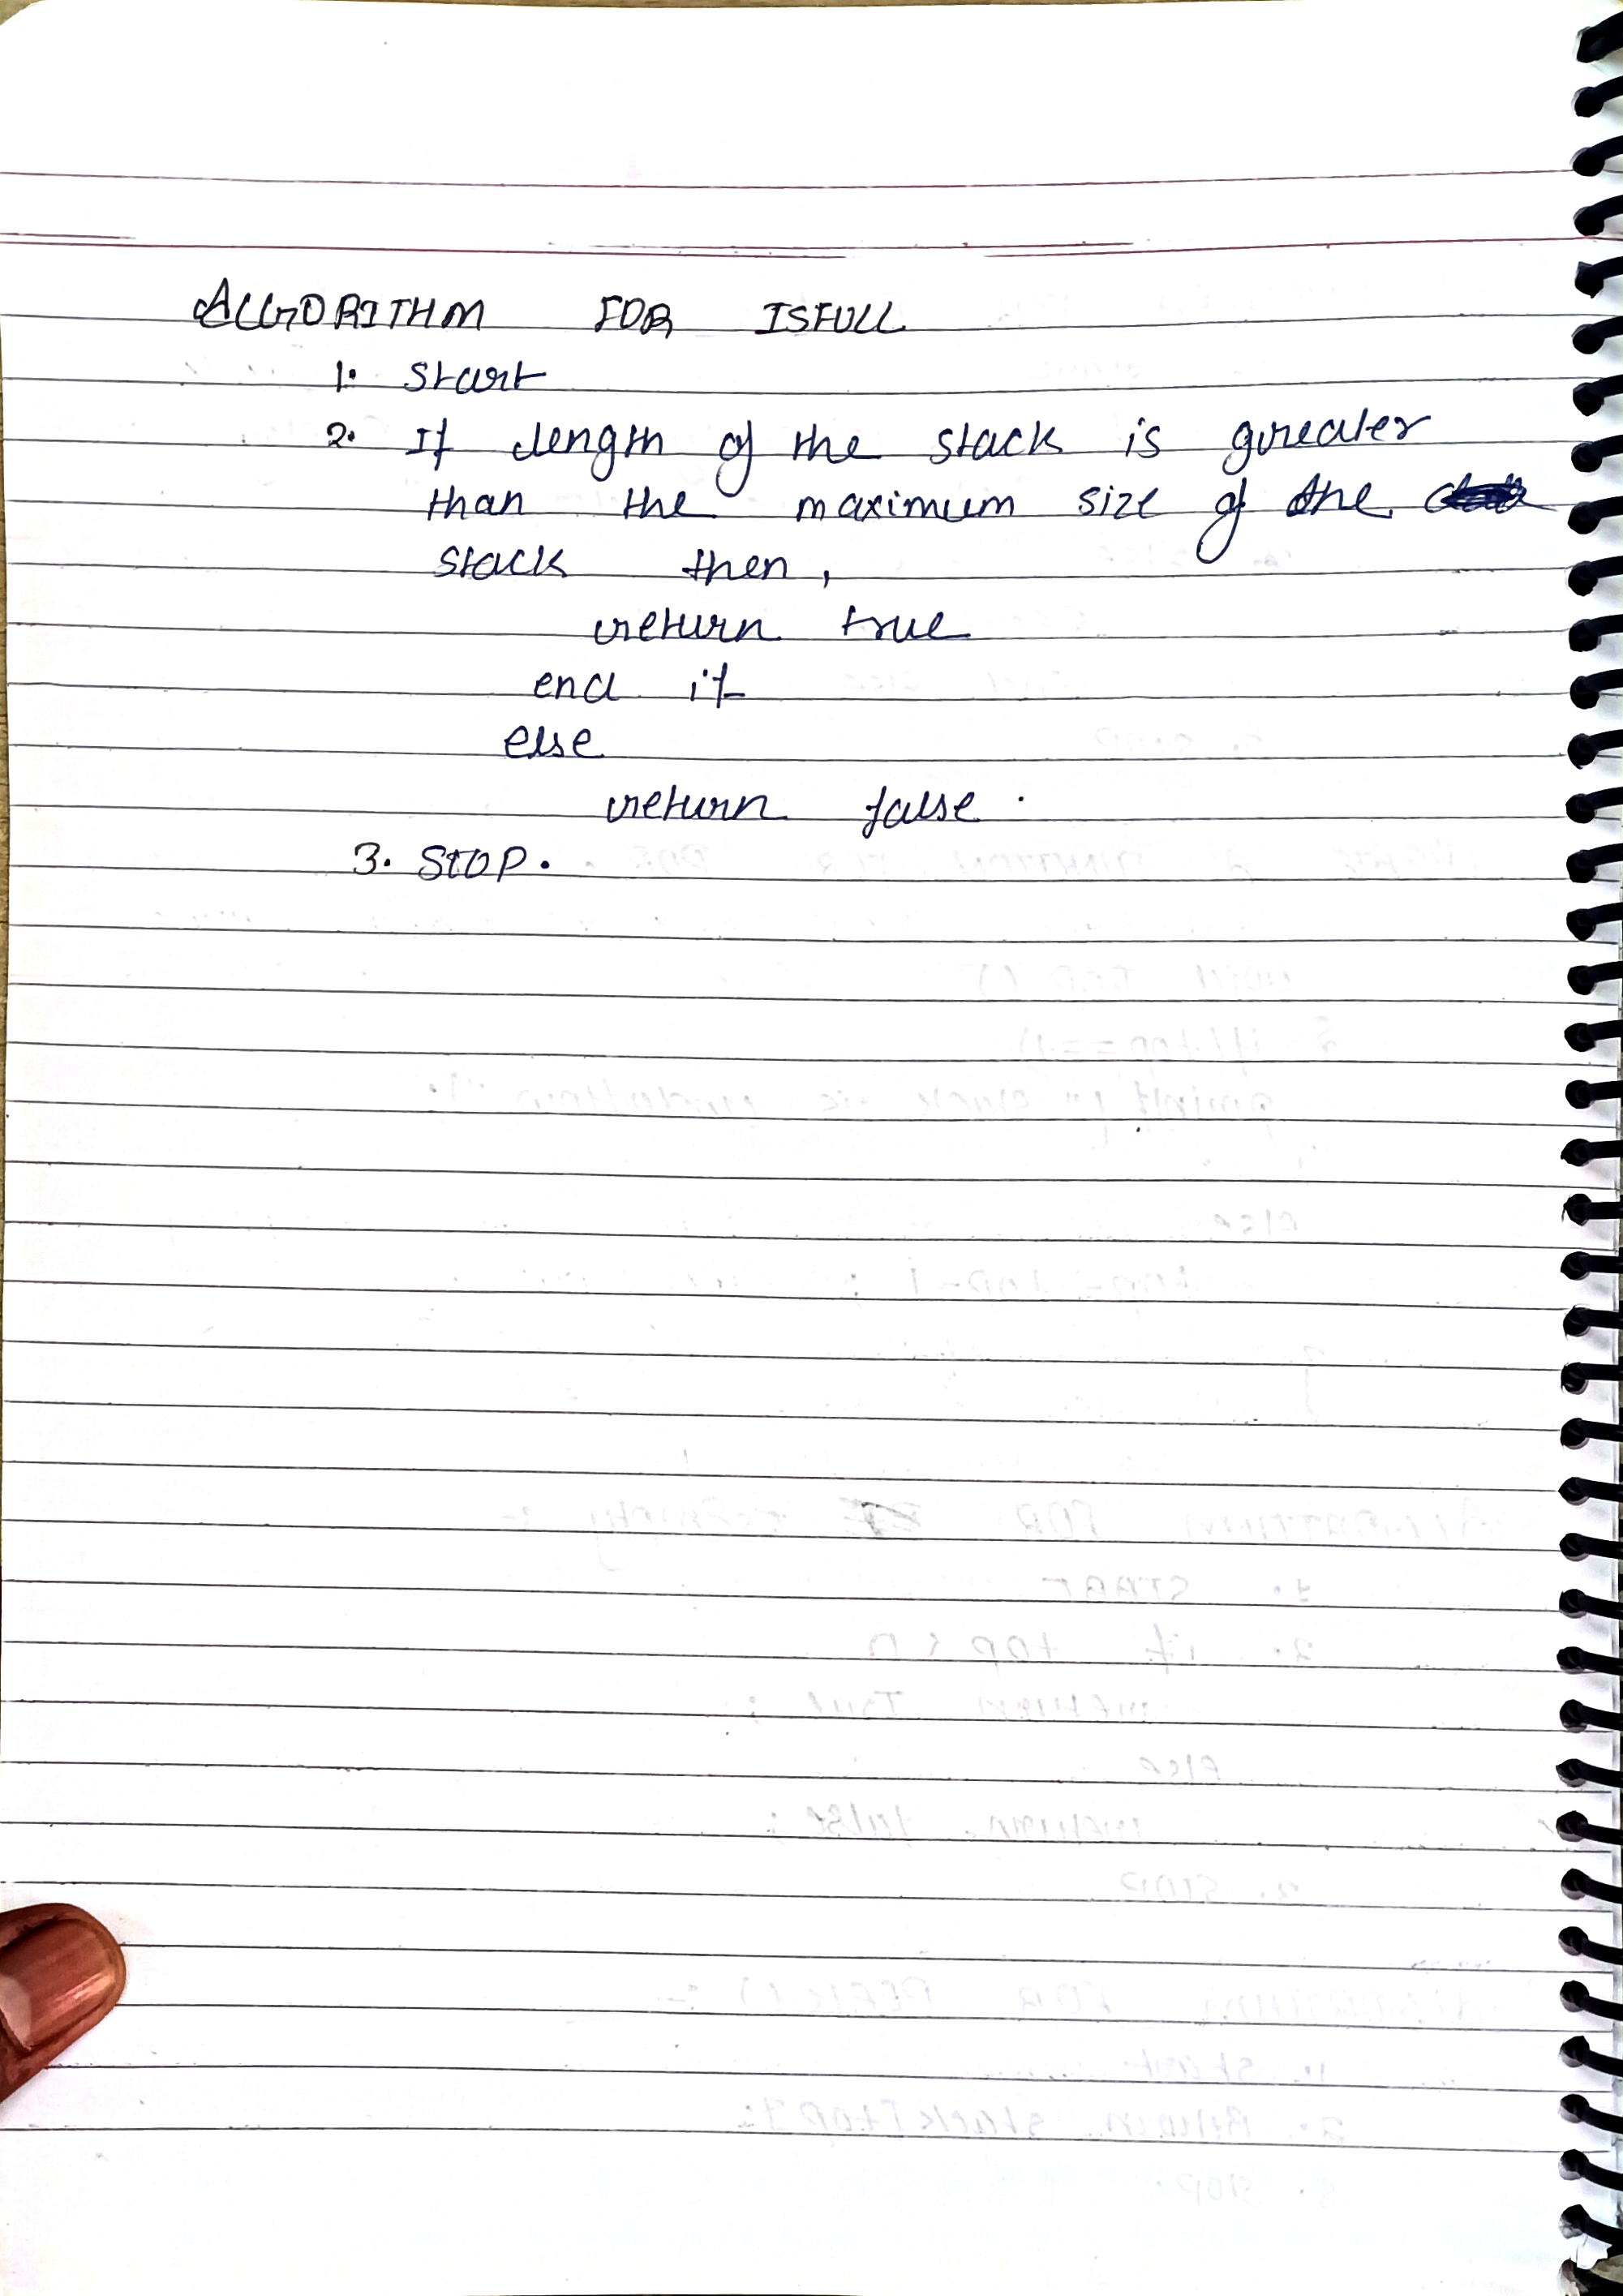 ALGORITHM FOR ISFULL
1. Start
2. If length of the stack is greater
than the maximum size of the
stack then,
return true
end if
else
return false.
3. STOP.